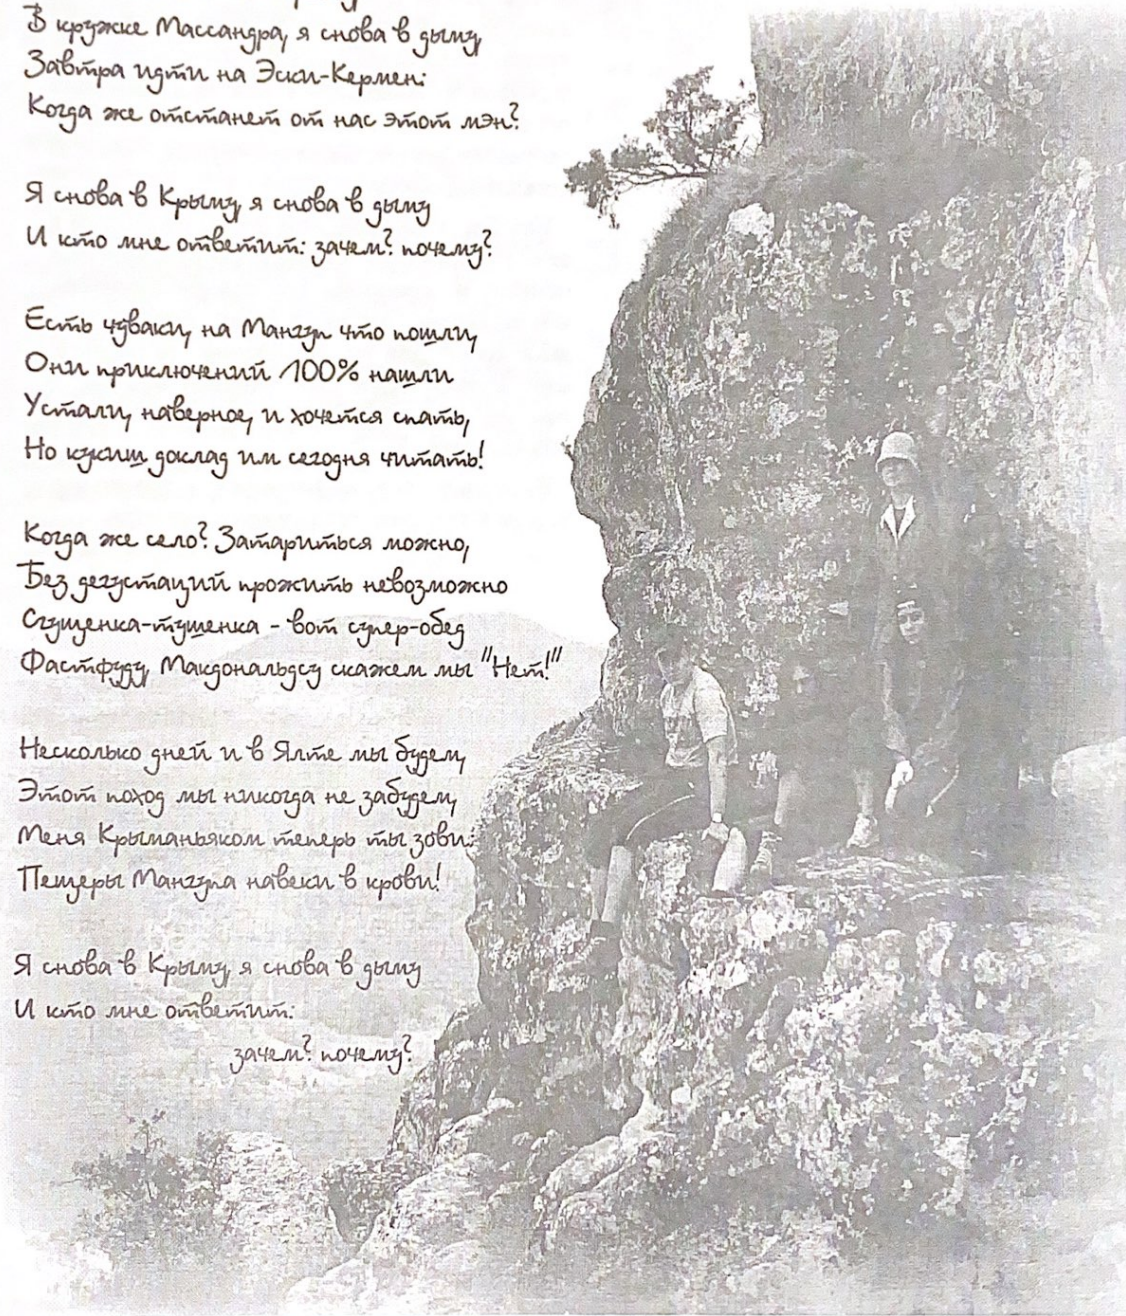 В кружке Массандра, я снова в дыму,
Завтра идти на Эски-Кермен:
Когда же отстанет от нас этот мэн?
Я снова в Крыму, я снова в дыму
И кто мне ответит: зачем? почему?
Есть чуваки, на Мангуп что пошли,
Они приключений 100% нашли
Устали, наверное, и хочется спать,
Но кукиш доклад им сегодня читать!
Когда же село? Затариться можно,
Без дегустаций прожить невозможно
Сгущенка-тушенка - вот супер-обед
Фастфуду, Макдональдсу скажем мы "Нет!"
Несколько дней и в Ялте мы будем,
Этот поход мы никогда не забудем,
Меня Крыманьяком теперь ты зови:
Пещеры Мангупа навеки в крови!
Я снова в Крыму, я снова в дыму
И кто мне ответит:
зачем? почему?